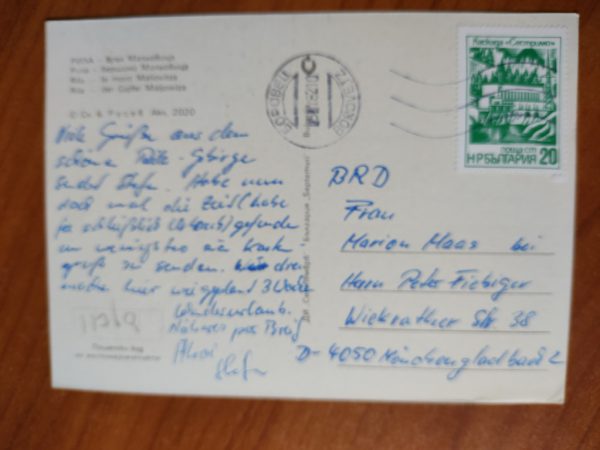 РИЛА - Връх Мальовица
Рила - Вершина Мальовица
Rila - le mont Maljovitza
Rila - der Gipfel Maljowiza
Viele Grüße aus dem
schönen Rila-Gebirge
sendet Stefan. Habe nun
doch mal die Zeit (habe
ja schließlich Urlaub) gefunden
um wenigstens eine Karte
zu senden. Wir drei
machen hier 3 Wochen
Wanderurlaub.
Näheres per Brief
Ahoi
Stefan
Каскада "Сестримо"
поща ст
НР БЪЛГАРИЯ 20
BRD
Frau
Marion Maas bei
Herrn Peter Fiebiger
Wickrather Str. 38
D-4050 Mönchengladbach 2